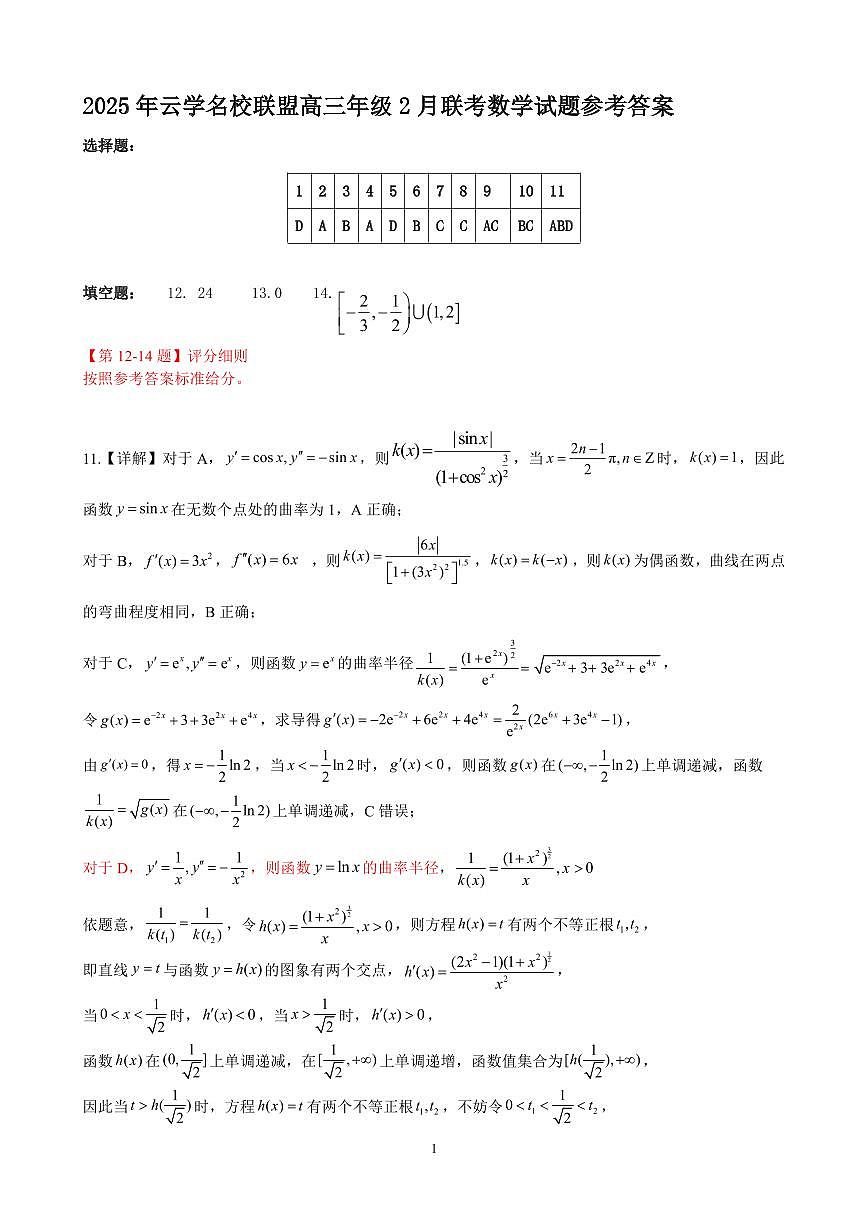 2025 年云学名校联盟高三年级 2 月联考数学试题参考答案
选择题：
1 2 3 4 5 6 7 8 9 10 11
D A B A D B C C AC BC ABD
填空题： 12. 24 13.0 14. [-2/3, -1/2) ∪ (1,2]
【第 12-14 题】评分细则
按照参考答案标准给分。
11.【详解】对于 A，y′ = cos x, y″ = −sin x，则 k(x) = |sin x| / (1+cos² x)^(3/2)，当 x = (2n−1)/2 π, n ∈ Z 时，k(x) = 1，因此
函数 y = sin x 在无数个点处的曲率为 1，A 正确；
对于 B，f′(x) = 3x²，f″(x) = 6x ，则 k(x) = |6x| / [1+(3x²)²]^1.5，k(x) = k(−x)，则 k(x) 为偶函数，曲线在两点
的弯曲程度相同，B 正确；
对于 C，y′ = e^x, y″ = e^x，则函数 y = e^x 的曲率半径 1/k(x) = (1+e^(2x))^(3/2) / e^x = √(e^(−2x) + 3 + 3e^(2x) + e^(4x))，
令 g(x) = e^(−2x) + 3 + 3e^(2x) + e^(4x)，求导得 g′(x) = −2e^(−2x) + 6e^(2x) + 4e^(4x) = 2/e^(2x) (2e^(6x) + 3e^(4x) − 1)，
由 g′(x) = 0，得 x = −1/2 ln 2，当 x < −1/2 ln 2 时，g′(x) < 0，则函数 g(x) 在 (−∞, −1/2 ln 2) 上单调递减，函数
1/k(x) = √g(x) 在 (−∞, −1/2 ln 2) 上单调递减，C 错误；
对于 D，y′ = 1/x, y″ = −1/x²，则函数 y = ln x 的曲率半径，1/k(x) = (1+x²)^(3/2) / x, x > 0
依题意，1/k(t₁) = 1/k(t₂)，令 h(x) = (1+x²)^(3/2) / x, x > 0，则方程 h(x) = t 有两个不等正根 t₁,t₂，
即直线 y = t 与函数 y = h(x) 的图象有两个交点，h′(x) = (2x²−1)(1+x²)^(1/2) / x²，
当 0 < x < 1/√2 时，h′(x) < 0，当 x > 1/√2 时，h′(x) > 0，
函数 h(x) 在 (0, 1/√2] 上单调递减，在 [1/√2, +∞) 上单调递增，函数值集合为 [h(1/√2), +∞)，
因此当 t > h(1/√2) 时，方程 h(x) = t 有两个不等正根 t₁,t₂，不妨令 0 < t₁ < 1/√2 < t₂，
1